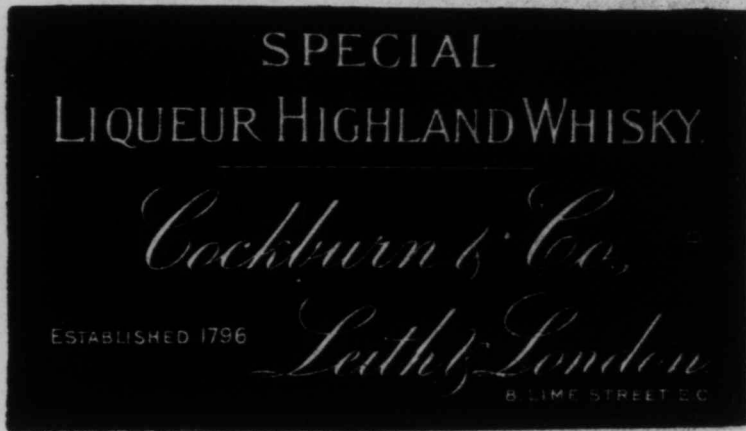 SPECIAL
LIQUEUR HIGHLAND WHISKY.
Cockburn & Co.,
ESTABLISHED 1796
Leith & London
8 LIME STREET E.C